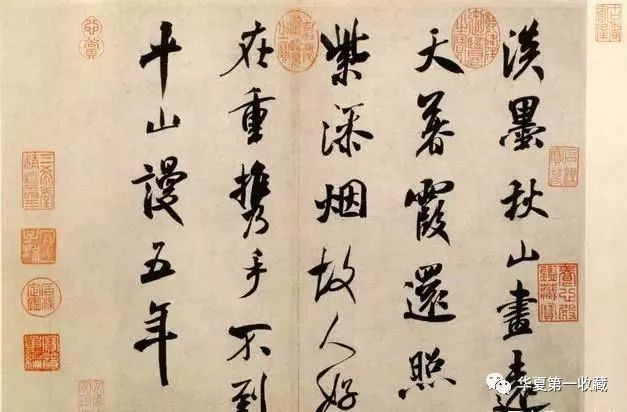 淡墨秋山畫遠
天暮霞還照
紫添烟故人好
在重携手不到
平山謾五年
华夏第一收藏